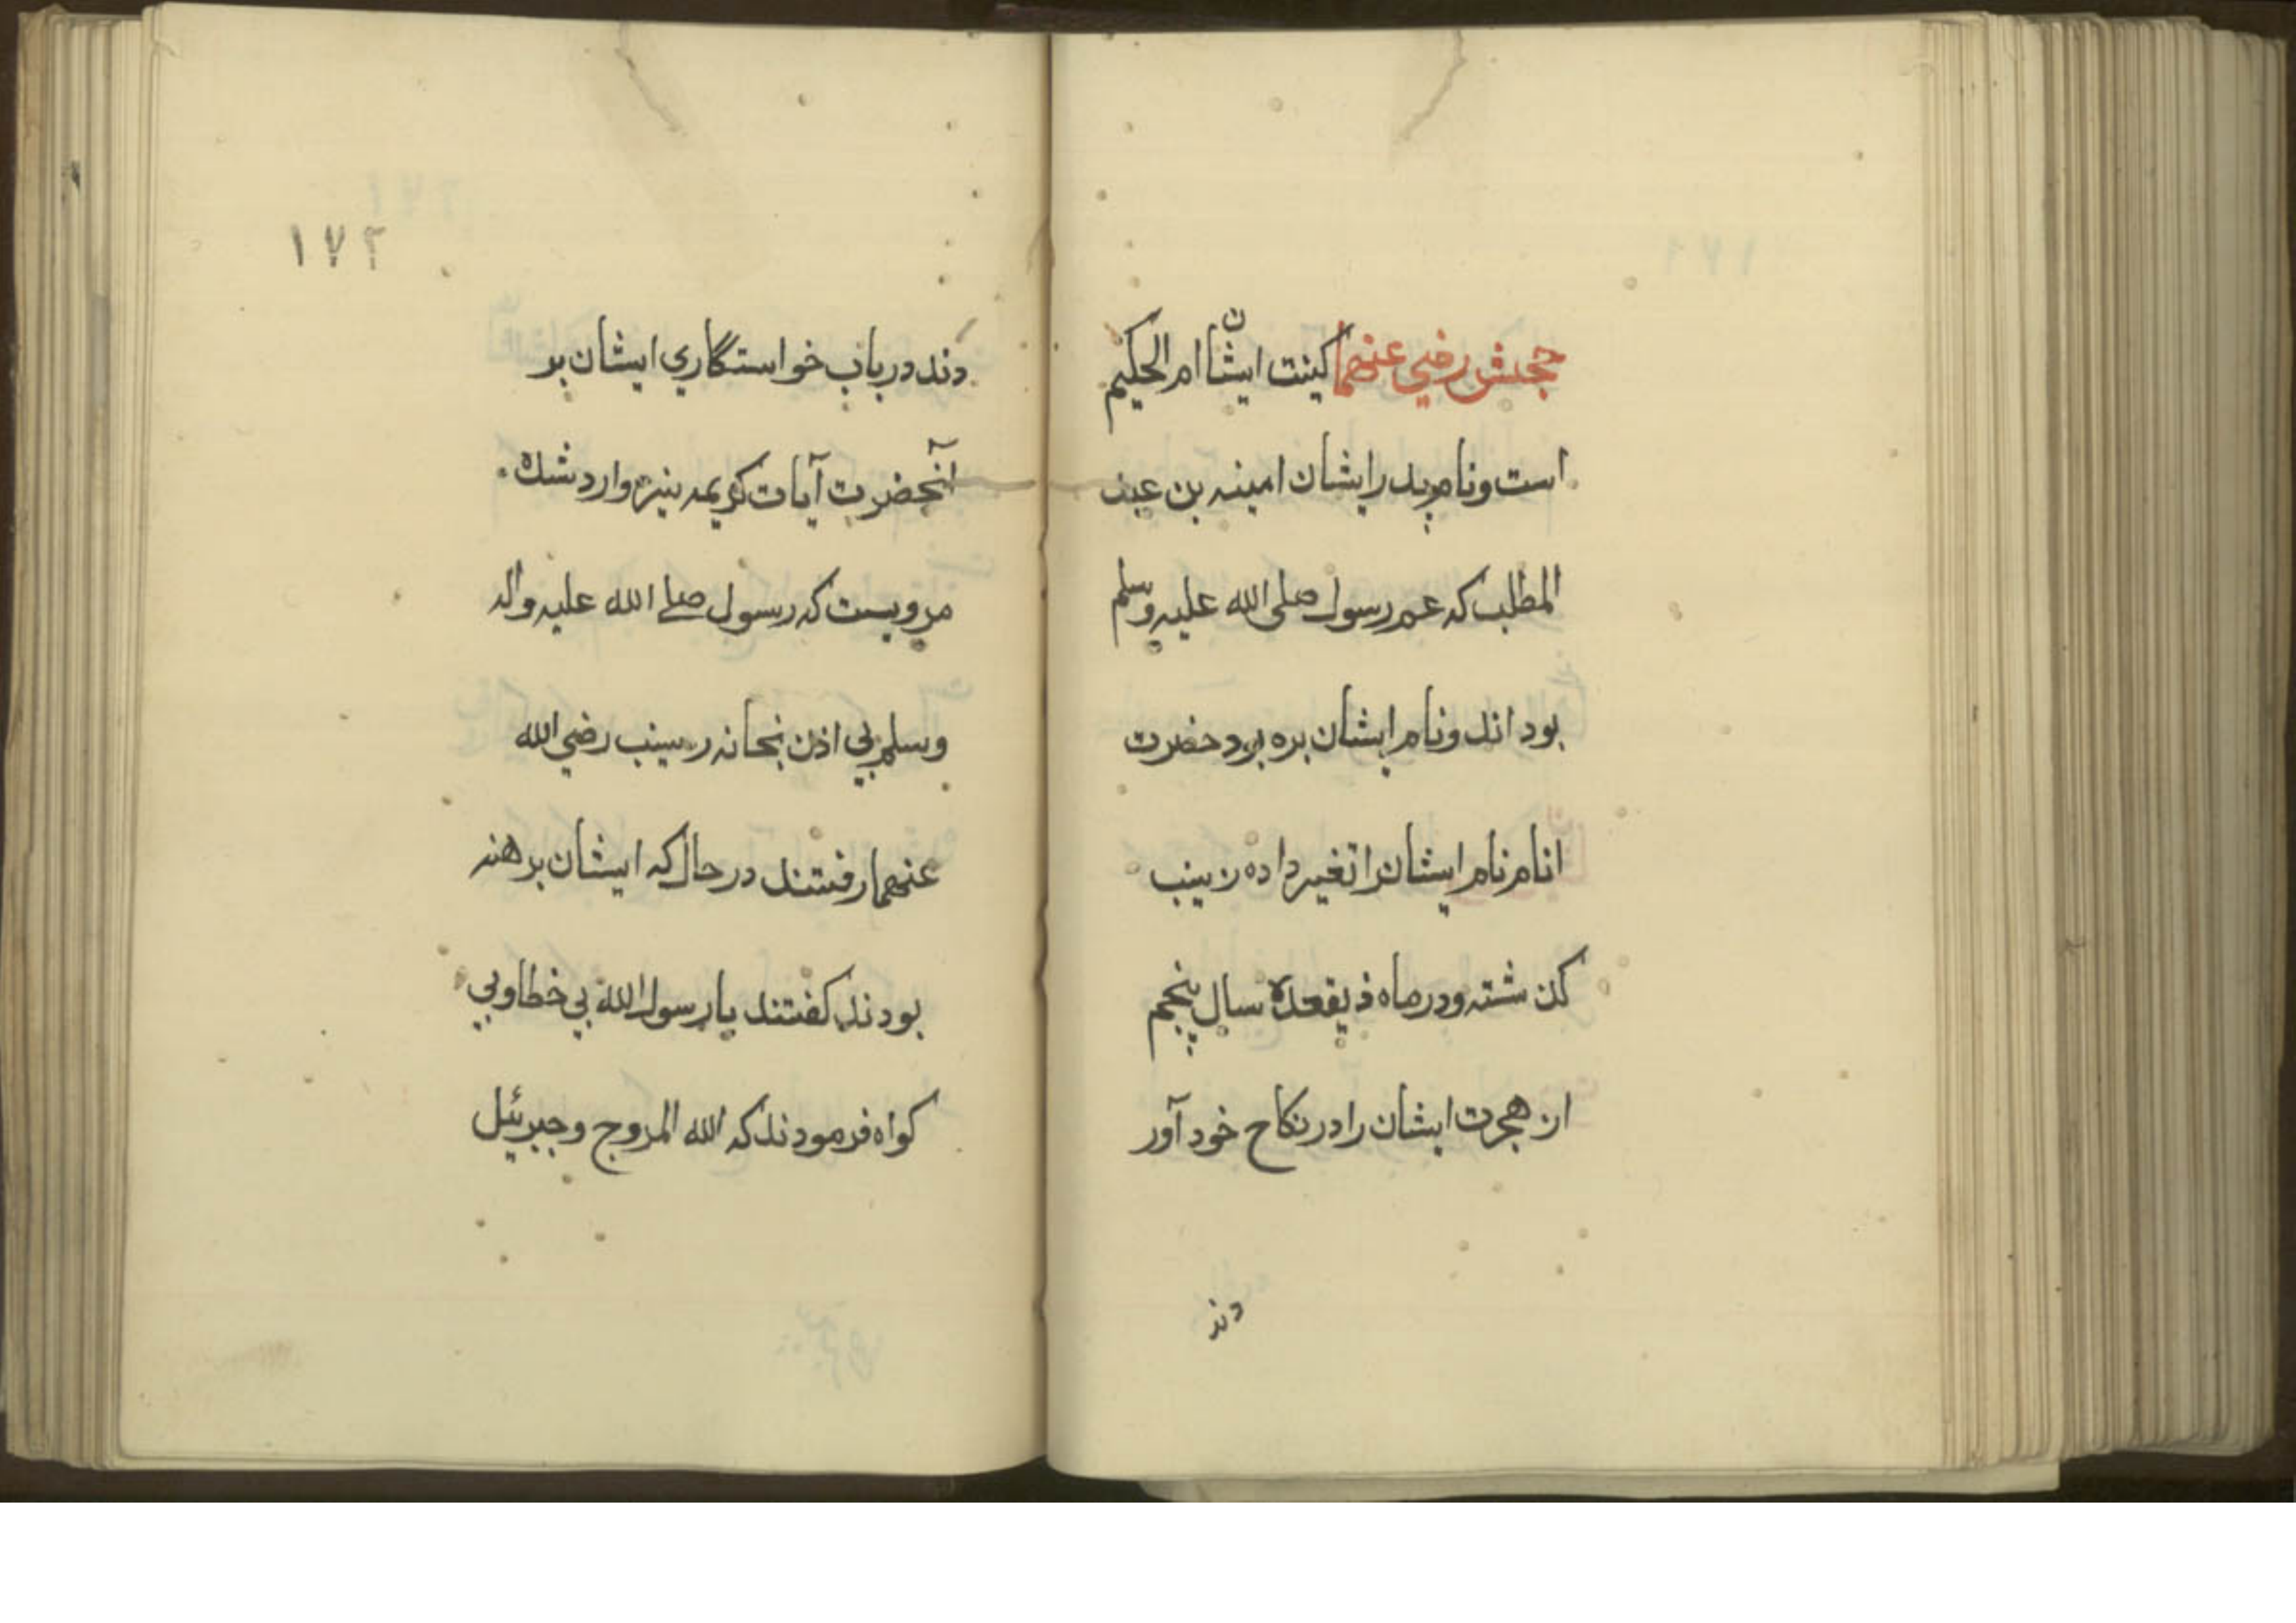 حجش رضي عنهما كينت ايشان ام الحكيم
است ونام پدر ايشان امينه بن عبد
المطلب كه عم رسول صلى الله عليه وسلم
بود اند ونام ايشان بره بود حضرت
انام نام ايشان را تغير داده زينب
كذ شته ودر ماه ذيقعده سال پنجم
از هجرت ايشان را در نكاح خود آور
دند
١٧٢
دند در باب خواستگاري ايشان بر
آنحضرت آيات كريمه نيز وارد شده
مرويست كه رسول صلے الله عليه واله
وسلم بي اذن بخانه زينب رضي الله
عنهما رفتند در حال كه ايشان برهنه
بودند كفتند يا رسول الله بي خطا وبي
كواه فرمودند كه الله المزوج وجبرئيل